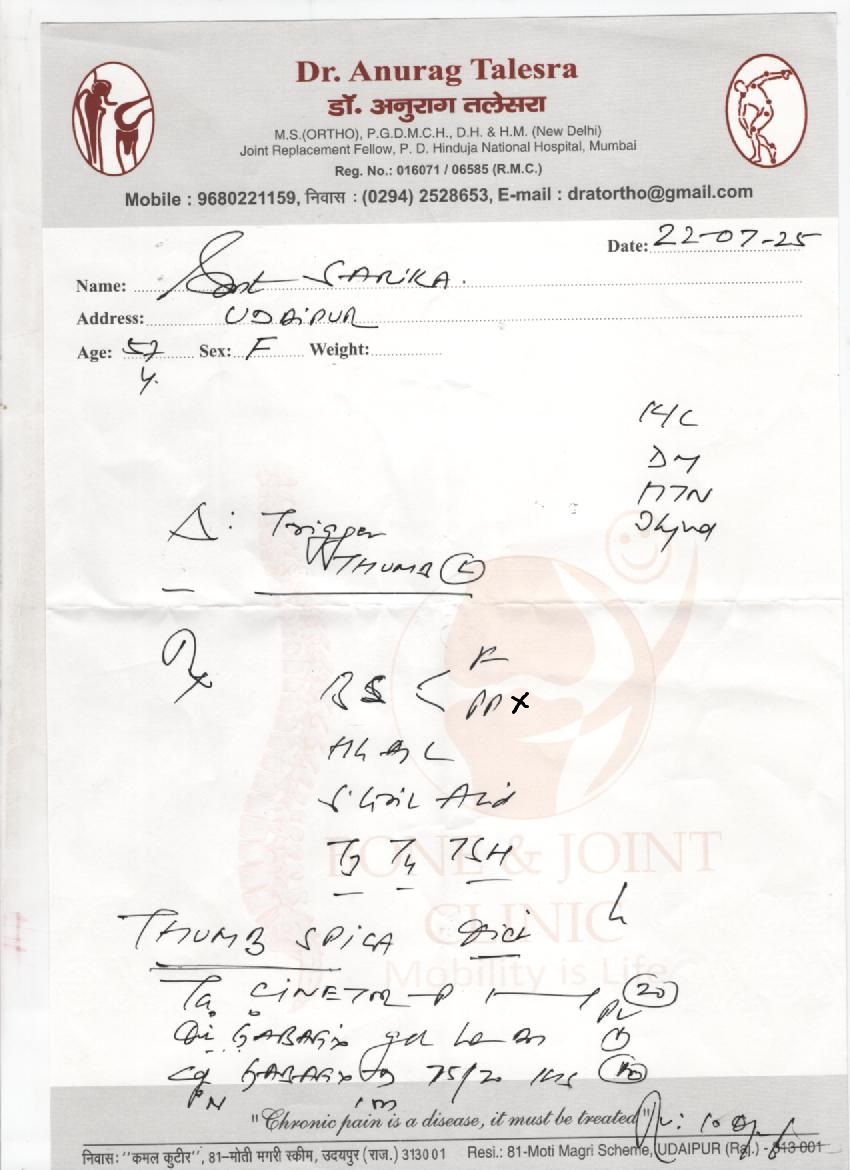 Dr. Anurag Talesra
डॉ. अनुराग तलेसरा
M.S.(ORTHO), P.G.D.M.C.H., D.H. & H.M. (New Delhi)
Joint Replacement Fellow, P. D. Hinduja National Hospital, Mumbai
Reg. No.: 016071 / 06585 (R.M.C.)
Mobile : 9680221159, निवास : (0294) 2528653, E-mail : dratortho@gmail.com
Date: 22-07-25
Name: SARIKA.
Address: UDAIPUR
Age: 57 y. Sex: F Weight:
K/C
DM
HTN
Thyroid
Δ: Trigger
THUMB (L)
Rx
BS < F
PP x
HbA1C
S. Uric Acid
T3 T4 TSH
BONE & JOINT
CLINIC
THUMB SPICA
Mobility is Life
GABAGIX gel
75/20
"Chronic pain is a disease, it must be treated"
निवासः "कमल कुटीर", 81-मोती मगरी स्कीम, उदयपुर (राज.) 313001 Resi.: 81-Moti Magri Scheme, UDAIPUR (Raj.) - 313 001